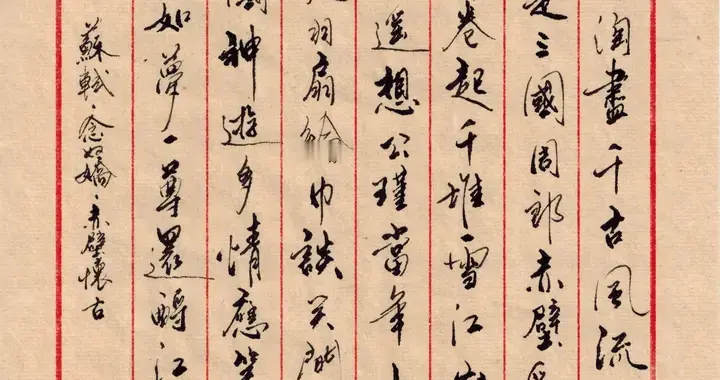 淘盡千古風流
三國周郎赤壁
卷起千堆雪江
遥想公瑾當年
羽扇綸巾談笑
神遊多情應笑
如夢一尊還酹江
蘇軾·念奴嬌·赤壁懷古